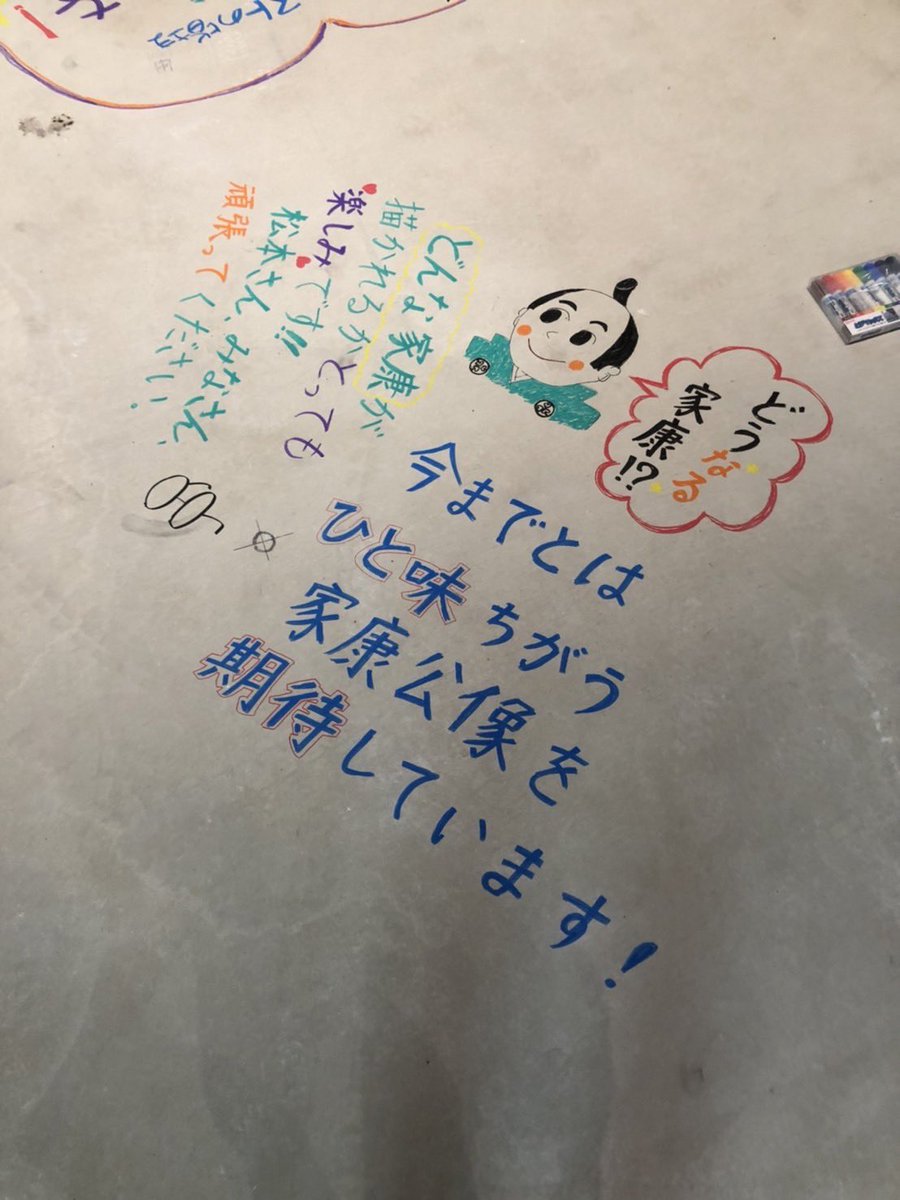 どうなる
家康!?
どんな家康が
描かれるか とっても
楽しみです!!
松本さん、みなさん、
頑張ってください!
今までとは
ひと味ちがう
家康公像を
期待しています!